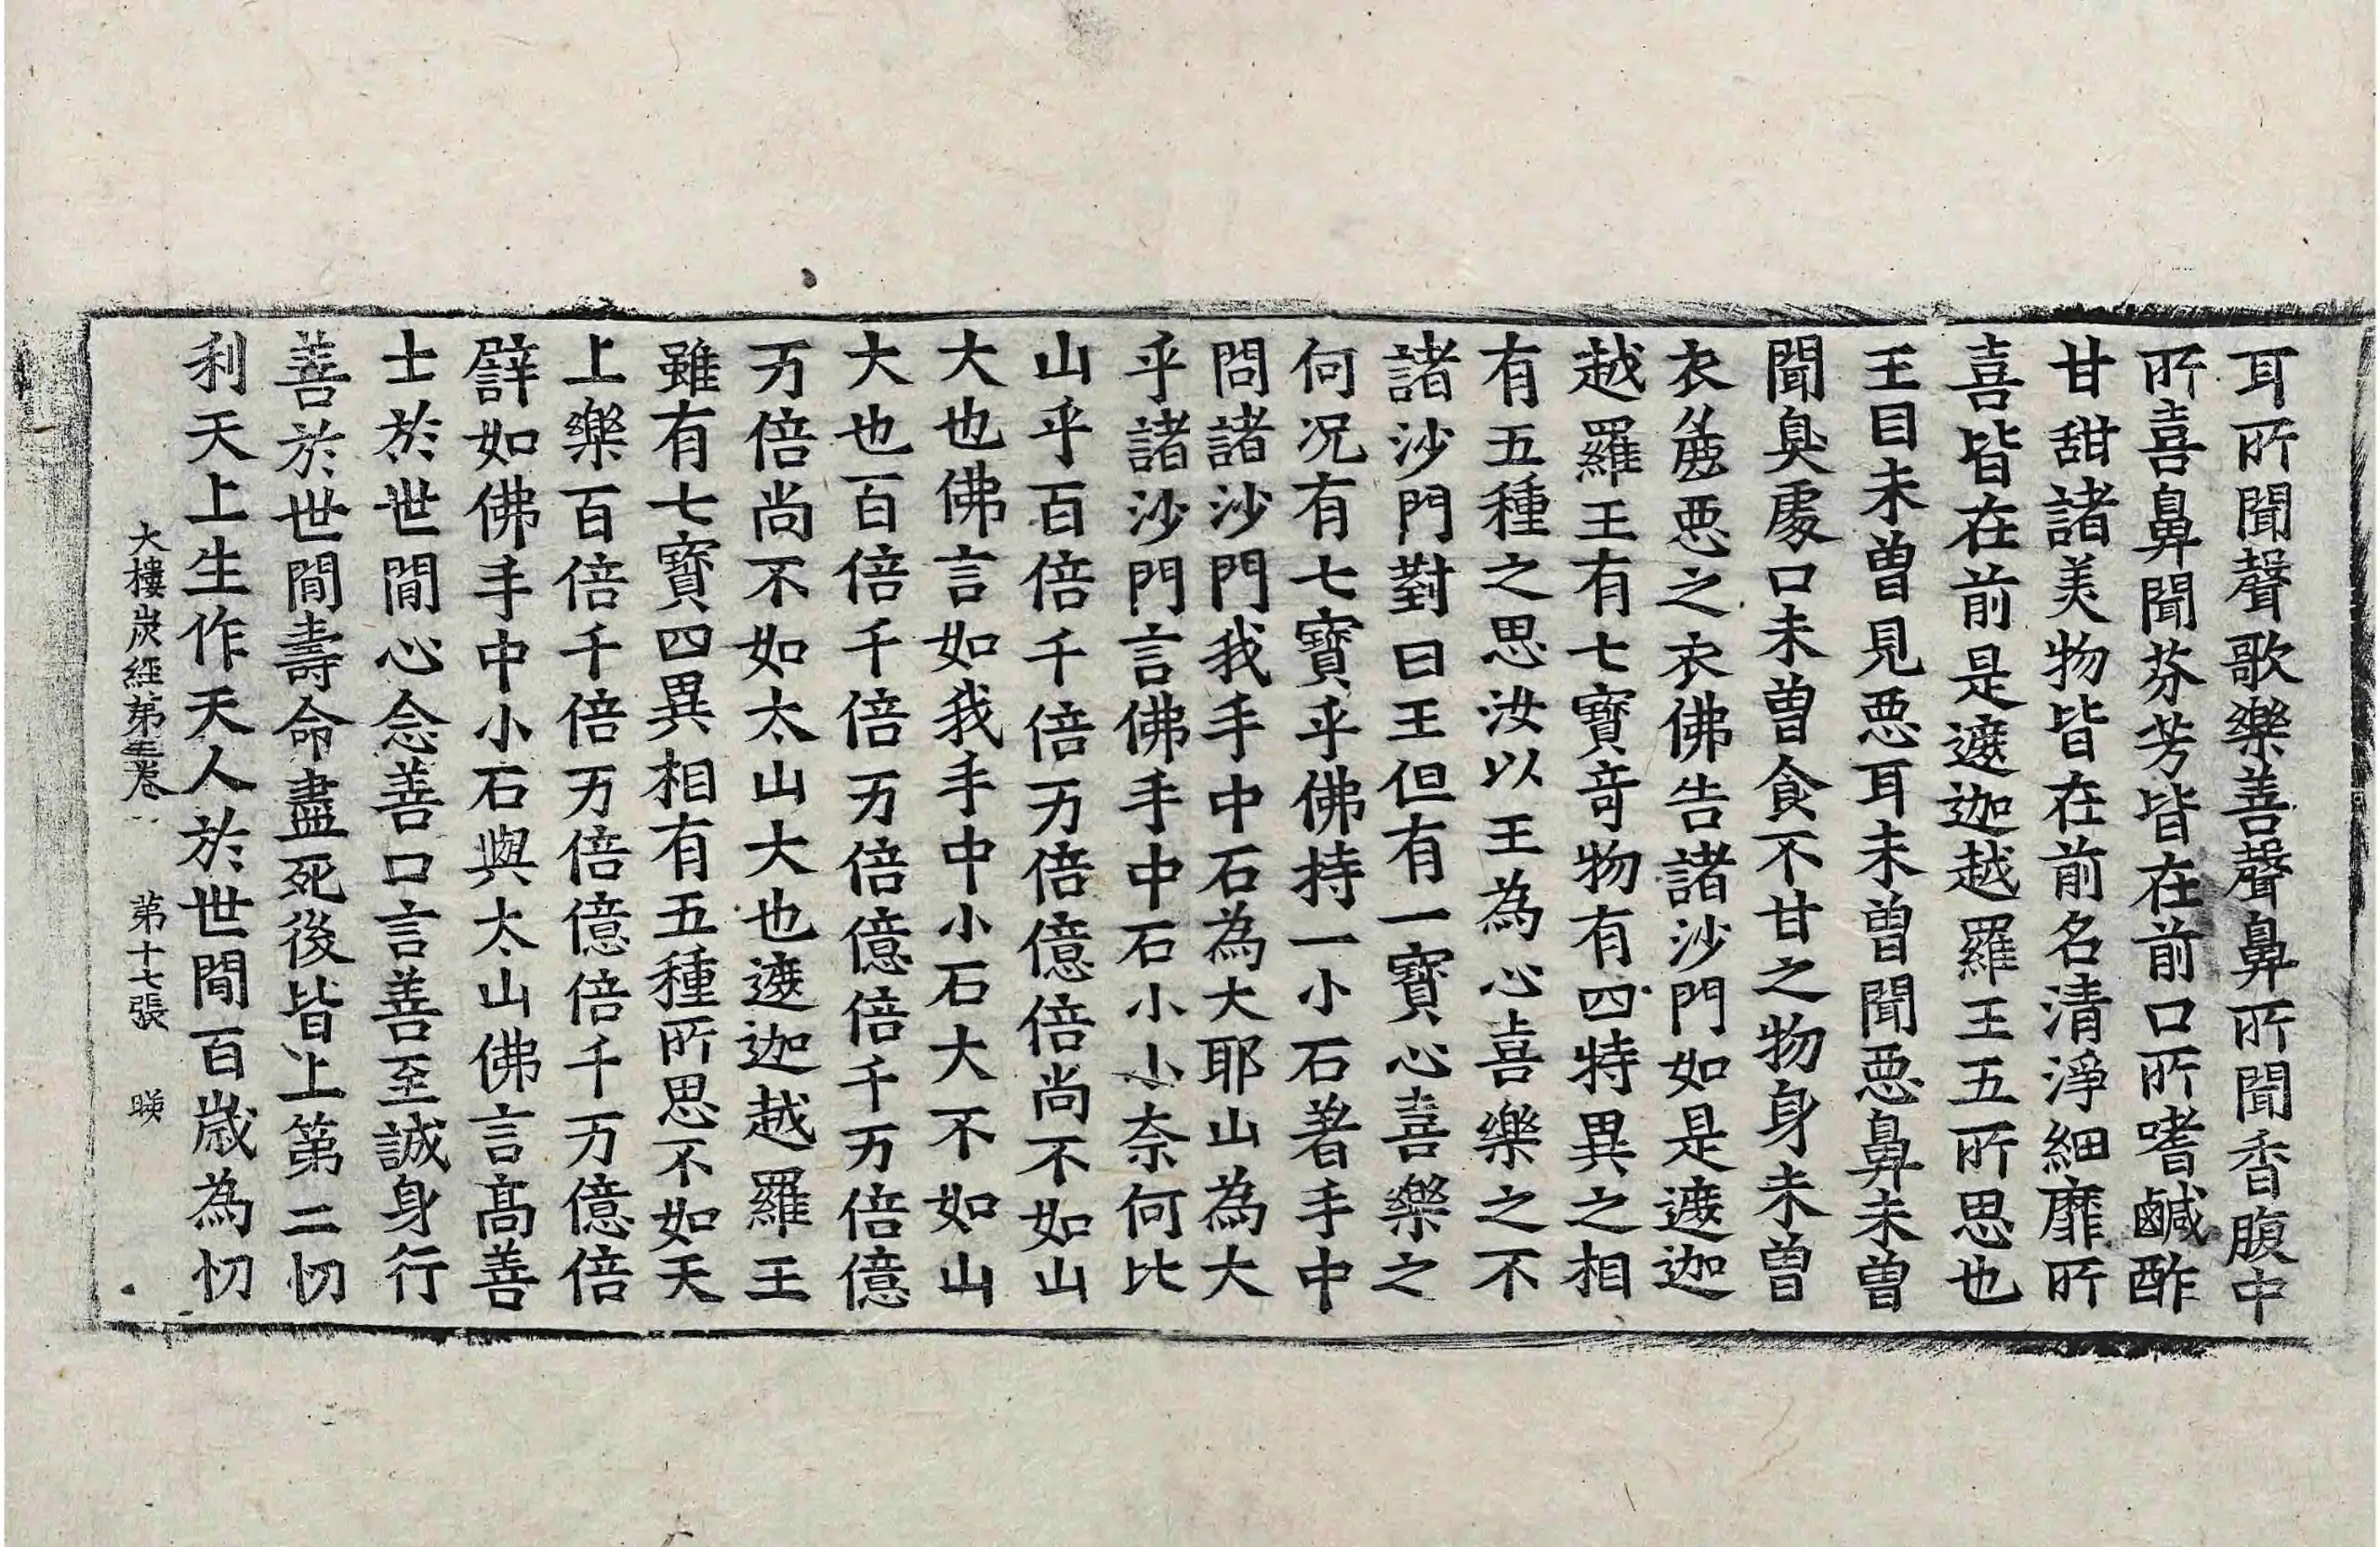 耳所聞聲歌樂善聲鼻所聞香腹中
所喜鼻聞芬芳皆在前口所嗜鹹酢
甘甜諸美物皆在前名清淨細靡所
喜皆在前是遮迦越羅王五所思也
王目未曾見惡耳未曾聞惡鼻未曾
聞臭處口未曾食不甘之物身未曾
衣麁惡之衣佛告諸沙門如是遮迦
越羅王有七寶奇物有四特異之相
有五種之思汝以王為心喜樂之不
諸沙門對曰王但有一寶心喜樂之
何況有七寶乎佛持一小石著手中
問諸沙門我手中石為大耶山為大
乎諸沙門言佛手中石小小奈何比
山乎百倍千倍万倍億倍尚不如山
大也佛言如我手中小石大不如山
大也百倍千倍万倍億倍千万倍億
万倍尚不如太山大也遮迦越羅王
雖有七寶四異相有五種所思不如天
上樂百倍千倍万倍億倍千万億倍
譬如佛手中小石與太山佛言高善
士於世間心念善口言善至誠身行
善於世間壽命盡死後皆上第二忉
利天上生作天人於世間百歲為忉
大樓炭經第三卷 第十七張